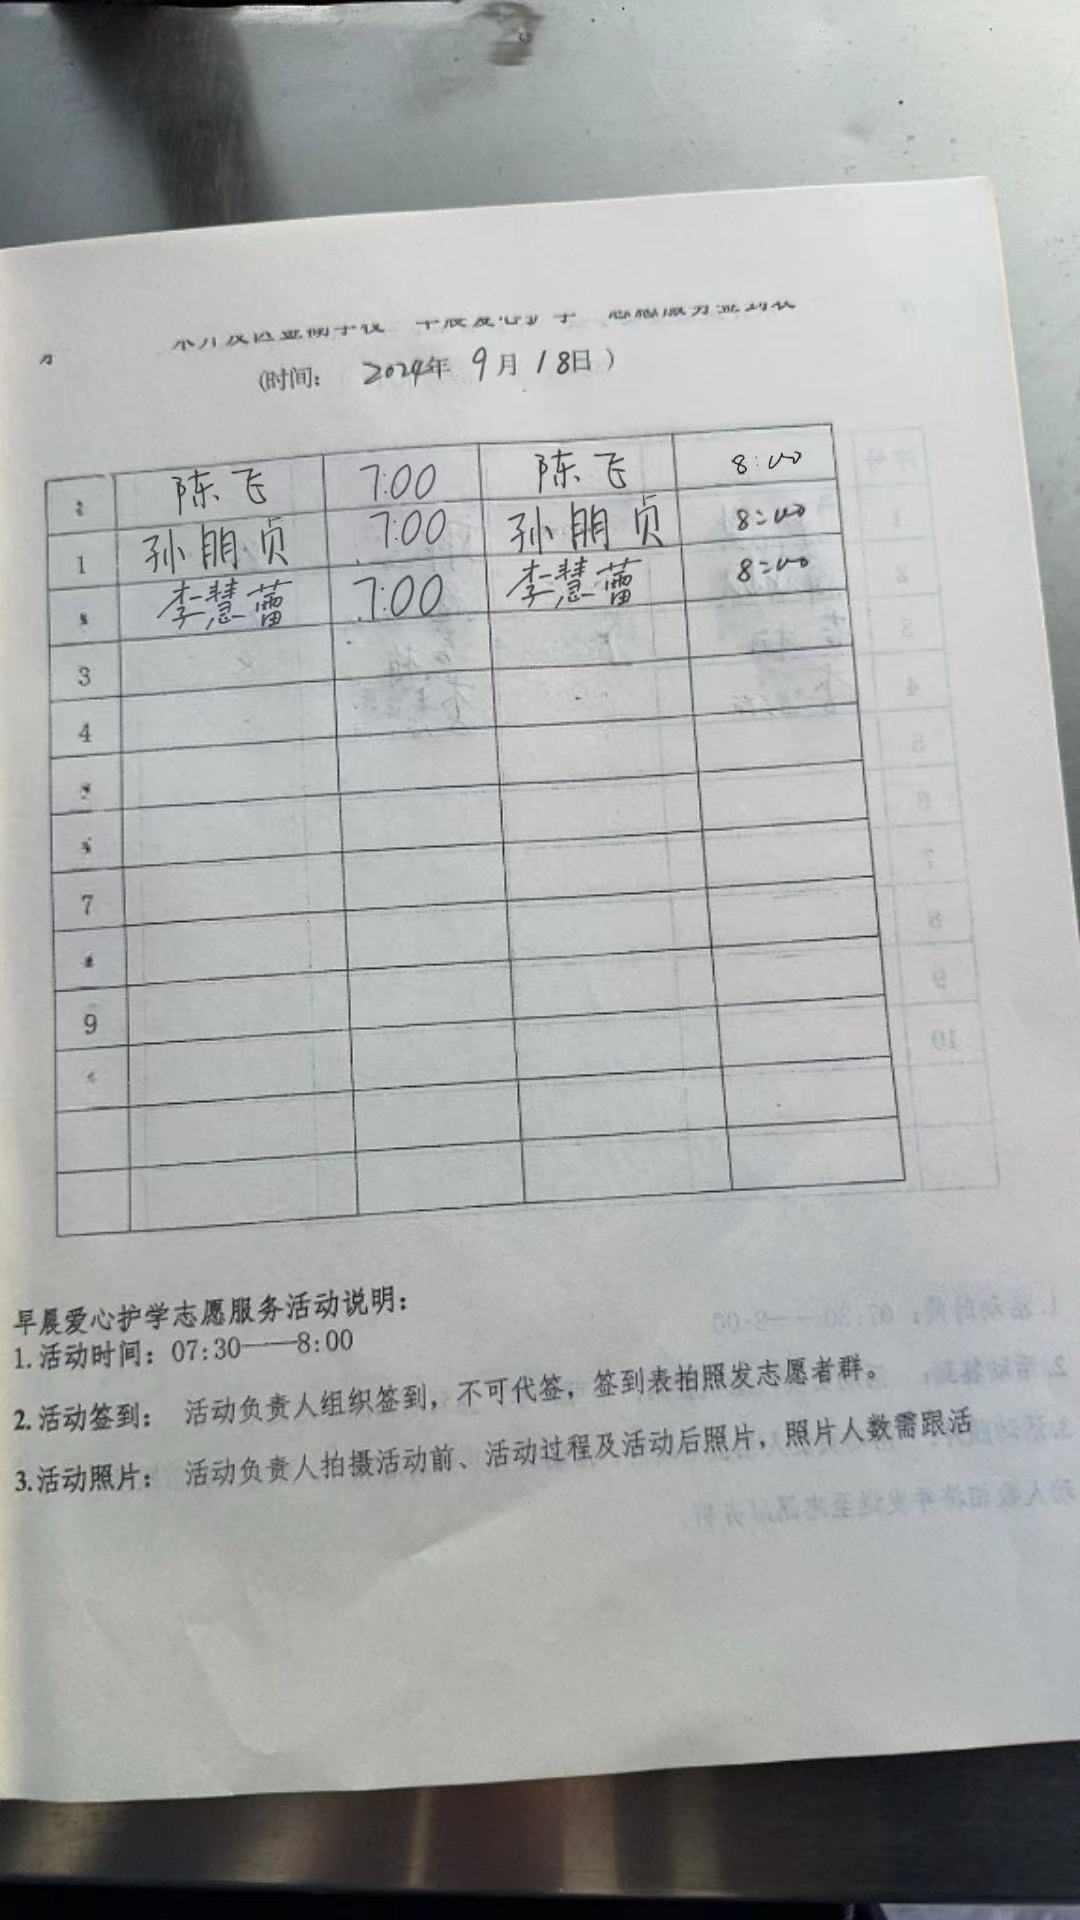 (时间： 2024年 9月18日 )
陈飞 7:00 陈飞 8:00
1 孙朋贞 7:00 孙朋贞 8:00
李慧蕾 7:00 李慧蕾 8:00
3
4
7
9
早晨爱心护学志愿服务活动说明：
1.活动时间：07:30——8:00
2.活动签到： 活动负责人组织签到，不可代签，签到表拍照发志愿者群。
3.活动照片： 活动负责人拍摄活动前、活动过程及活动后照片，照片人数需跟活